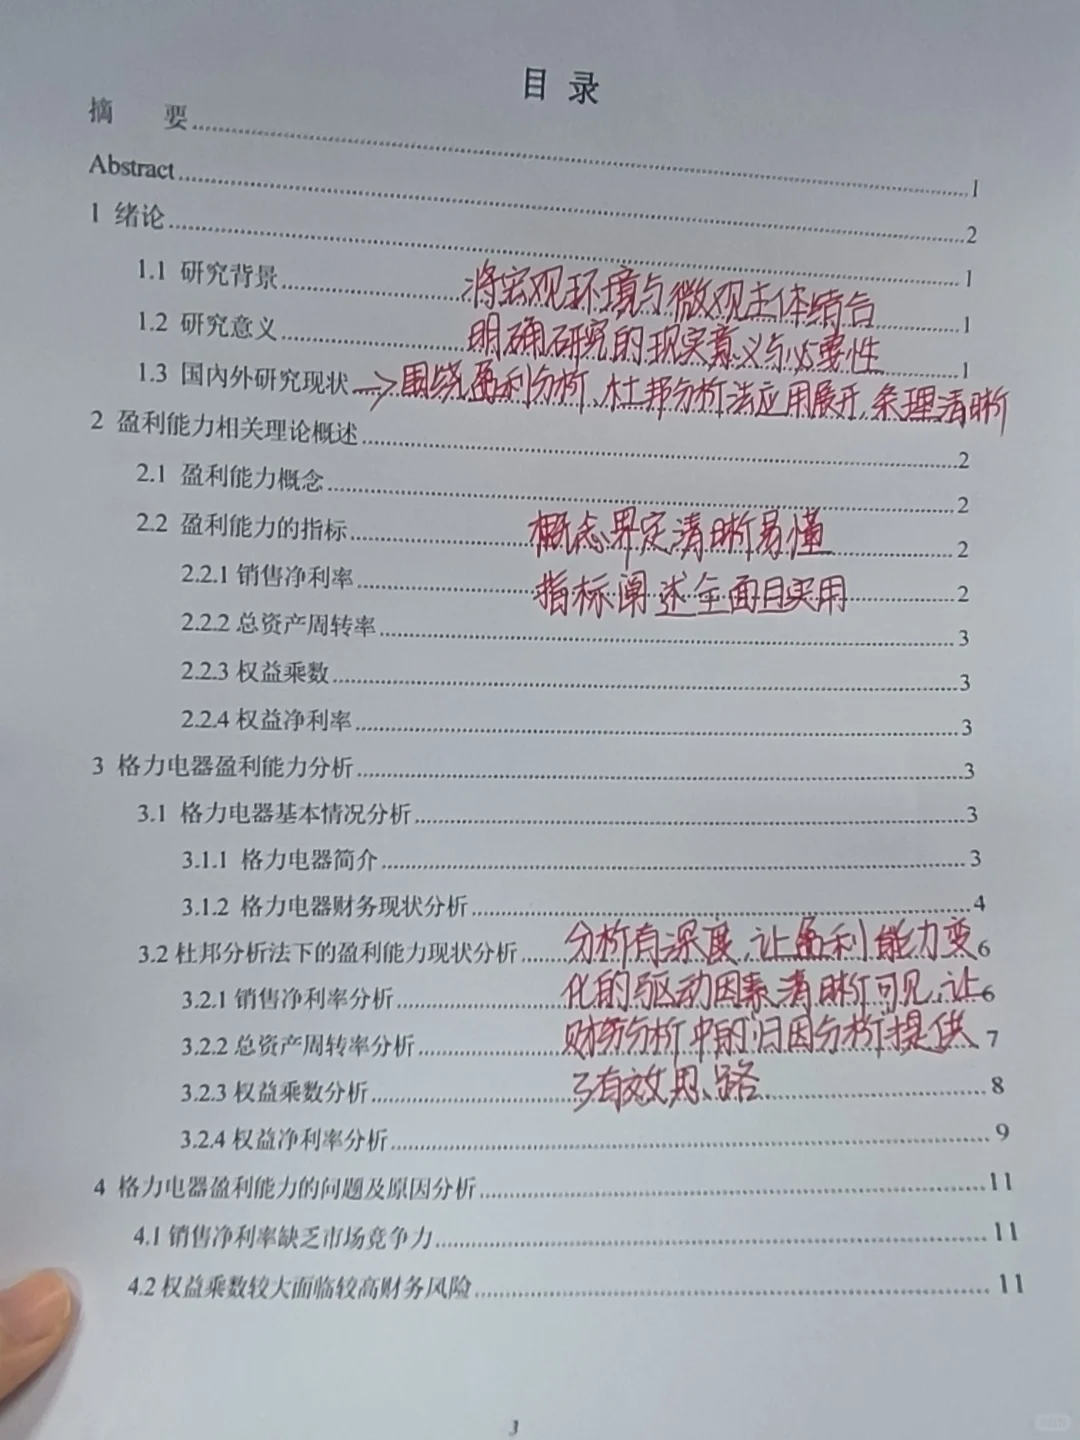 目 录
摘 要 1
Abstract 2
1 绪论 1
1.1 研究背景 1
将宏观环境与微观主体结合
1.2 研究意义 1
明确研究的现实意义与必要性
1.3 国内外研究现状
围绕盈利分析、杜邦分析法应用展开,条理清晰
2 盈利能力相关理论概述 2
2.1 盈利能力概念 2
2.2 盈利能力的指标 2
概念界定清晰易懂
2.2.1 销售净利率 2
指标阐述全面且实用
2.2.2 总资产周转率 3
2.2.3 权益乘数 3
2.2.4 权益净利率 3
3 格力电器盈利能力分析 3
3.1 格力电器基本情况分析 3
3.1.1 格力电器简介 3
3.1.2 格力电器财务现状分析 4
3.2 杜邦分析法下的盈利能力现状分析 6
分析有深度,让盈利能力变
3.2.1 销售净利率分析 6
化的驱动因素清晰可见,让
3.2.2 总资产周转率分析 7
财务分析中的归因分析提供
3.2.3 权益乘数分析 8
了有效思路
3.2.4 权益净利率分析 9
4 格力电器盈利能力的问题及原因分析 11
4.1 销售净利率缺乏市场竞争力 11
4.2 权益乘数较大面临较高财务风险 11
3